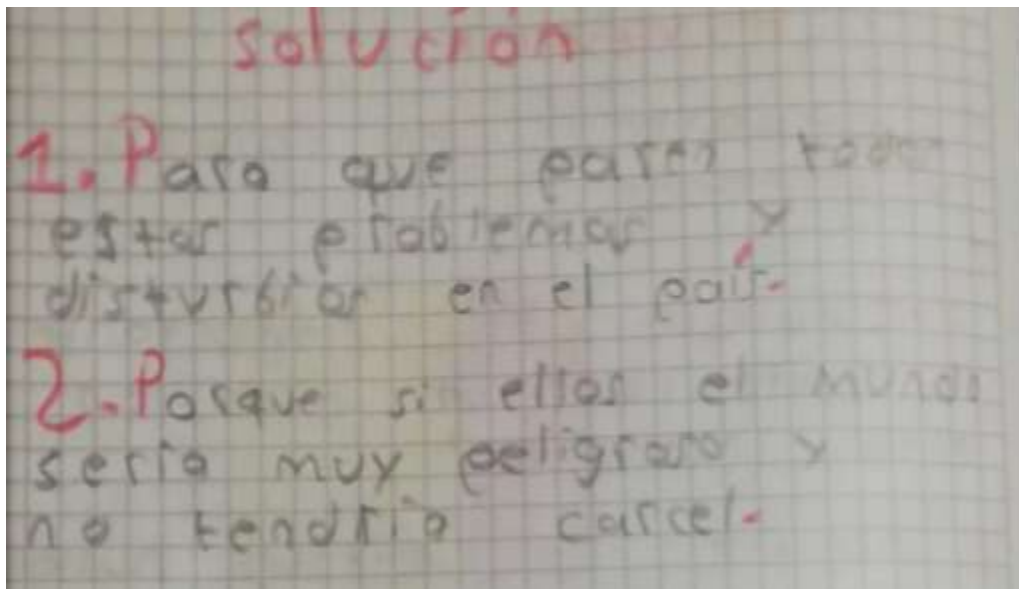 solución
1. Para que paren todos
estos problemas y
disturbios en el país.
2. Porque si ellos el mundo
sería muy peligroso y
no tendría carcel.